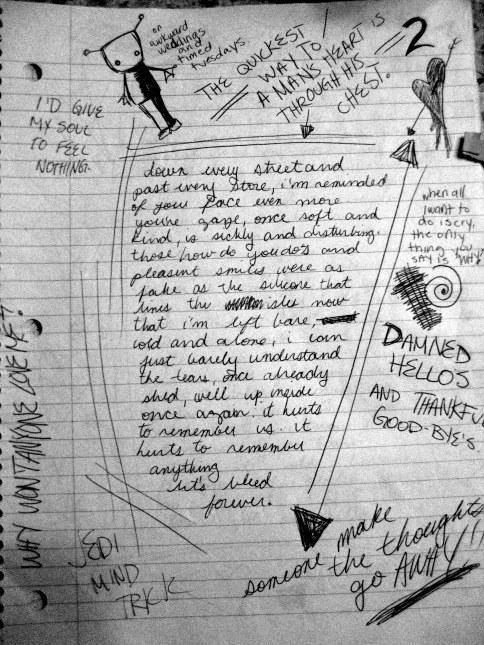 on
awkward
weddings
and
timed
tuesdays.
THE QUICKEST
WAY TO
A MAN'S HEART IS
THROUGH HIS
CHEST.
2
I'D GIVE
MY SOUL
TO FEEL
NOTHING.
down every street and
past every store, i'm reminded
of your face even more
you're gaze, once soft and
kind, is sickly and disturbing.
those how do you do's and
pleasent smiles were as
fake as the silicone that
lines the isles now
that i'm left bare,
cold and alone, i can
just barely understand
the tears, once already
shed, well up inside
once again. it hurts
to remember us. it
hurts to remember
anything
let's bleed
forever.
when all
i want to
do is cry,
the only
thing you
say is "why?"
DAMNED
HELLOS
AND THANKFUL
GOOD-BYE'S.
WHY WON'T ANYONE LOVE ME?
JEDI
MIND
TRICK
someone make
the thoughts
go AWAY!!